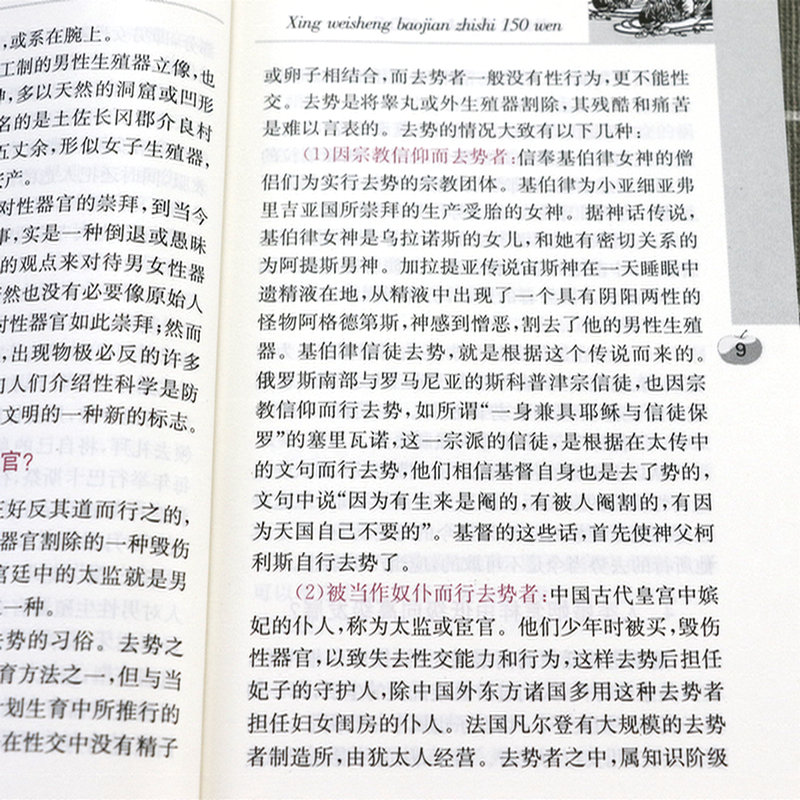 ，或系在腕上。
工制的男性生殖器立像，也
，多以天然的洞窟或凹形
名的是土佐长冈郡介良村
丈余，形似女子生殖器，
产。
对性器官的崇拜，到当今
事，实是一种倒退或愚昧
的观点来对待男女性器
然也没有必要像原始人
对性器官如此崇拜；然而
，出现物极必反的许多
的人们介绍性科学是防
文明的一种新的标志。
官？
好反其道而行之的，
器官割除的一种毁伤
宫廷中的太监就是男
一种。
去势的习俗。去势之
育方法之一，但与当
划生育中所推行的
在性交中没有精子
Xing weisheng baojian zhishi 150 wen
或卵子相结合，而去势者一般没有性行为，更不能性
交。去势是将睾丸或外生殖器割除，其残酷和痛苦
是难以言表的。去势的情况大致有以下几种：
(1)因宗教信仰而去势者：信奉基伯律女神的僧
侣们为实行去势的宗教团体。基伯律为小亚细亚弗
里吉亚国所崇拜的生产受胎的女神。据神话传说，
基伯律女神是乌拉诺斯的女儿，和她有密切关系的
为阿提斯男神。加拉提亚传说宙斯神在一天睡眠中
遗精液在地，从精液中出现了一个具有阴阳两性的
怪物阿格德第斯，神感到憎恶，割去了他的男性生殖
器。基伯律信徒去势，就是根据这个传说而来的。
俄罗斯南部与罗马尼亚的斯科普津宗信徒，也因宗
教信仰而行去势，如所谓“一身兼具耶稣与信徒保
罗”的塞里瓦诺，这一宗派的信徒，是根据在太传中
的文句而行去势，他们相信基督自身也是去了势的，
文句中说“因为有生来是阉的，有被人阉割的，有因
为天国自己不要的”。基督的这些话，首先使神父柯
利斯自行去势了。
(2)被当作奴仆而行去势者：中国古代皇宫中嫔
妃的仆人，称为太监或宦官。他们少年时被买，毁伤
性器官，以致失去性交能力和行为，这样去势后担任
妃子的守护人，除中国外东方诸国多用这种去势者
担任妇女闺房的仆人。法国凡尔登有大规模的去势
者制造所，由犹太人经营。去势者之中，属知识阶级
9